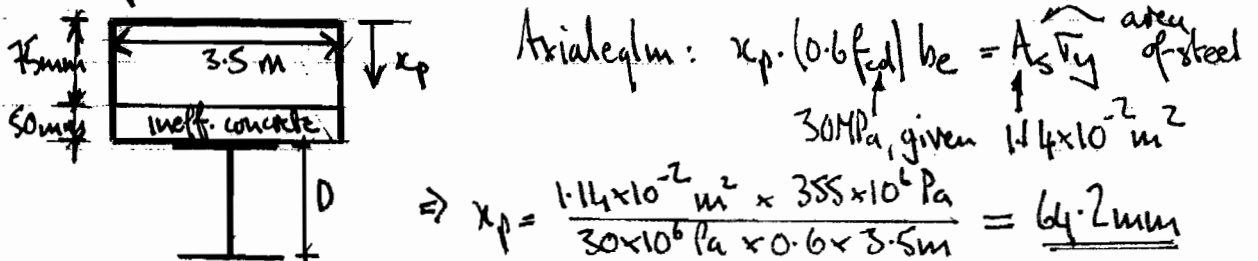 75mm
3.5 m
xₚ
50mm
ineff. concrete
D
Axial eqlm: xₚ.(0.6f_cd) bₑ = Aₛ σ_y
area of steel
30MPa, given
1.14x10⁻² m²
⇒ xₚ = 1.14x10⁻² m² x 355x10⁶ Pa / 30x10⁶ Pa x 0.6 x 3.5m = 64.2mm